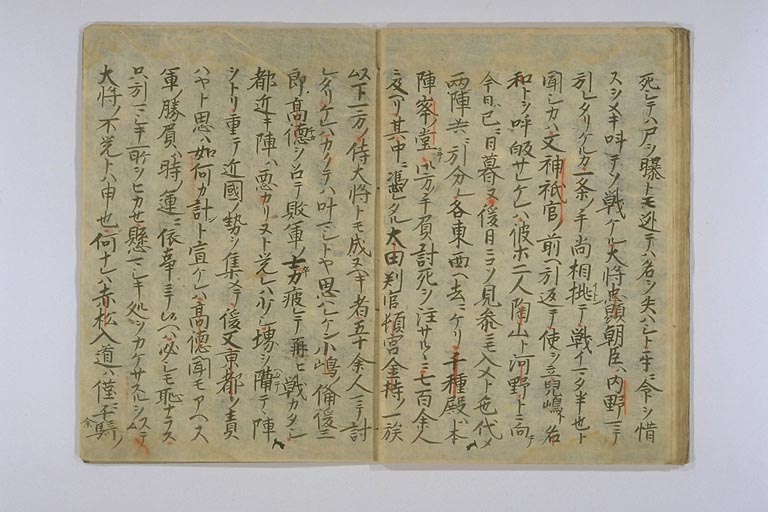 死シテハ尸ヲ曝トモ迯テハ名ヲ失ハシト互ニ令ヲ惜
スヲメキ叫テソ戦ケル大将忠顕朝臣ハ内野マテ
引レタリケルカ一条ノ手尚相挑テ戦イマタ半也ト
聞シカハ又神祇官ノ前ヘ引返テ使ヲ立児嶋ト名
和トヲ呼皈サレケレハ彼ホ二人陶山ト河野トニ向テ
今日已ニ日暮ヌ後日ニコソ見参ニモ入メト色代メ
両陣共ニ引分レ各東西ヘ去ニケリ千種殿ハ本
陣峯ノ堂ニ方ノ手負討死ヲ注サルヽニ七百余人
及ヘリ其中ニ憑レタル太田判官頓宮金持ノ一族
以下一方ノ侍大将トモ成ヌヘキ者五十余人マテ討
レタリケレハカクテハ叶マシトヤ思ハレケン小嶋ノ備後三
即高徳ヲ テ敗軍ノ士力疲レテ再ヒ戦カタシ
都近キ陣ハ悪カリヌト覚レハ少シ堺ヲ隔テ陣
ヲトリ重テ近國ノ勢ヲ集メテ後又京都ヲ責
ハヤト思ハ如何カ計ト宣ケレハ高徳聞モアヘス
軍ノ勝負ハ時ノ運ニ依事ニテ候ヘハ必シモ恥ナラス
只引マシキ所ヲヒカセ懸マシキ処ヲカケサスルヲ
大将ノ不覚トハ申也何ナレハ赤松入道ハ僅ニ千余騎ノ